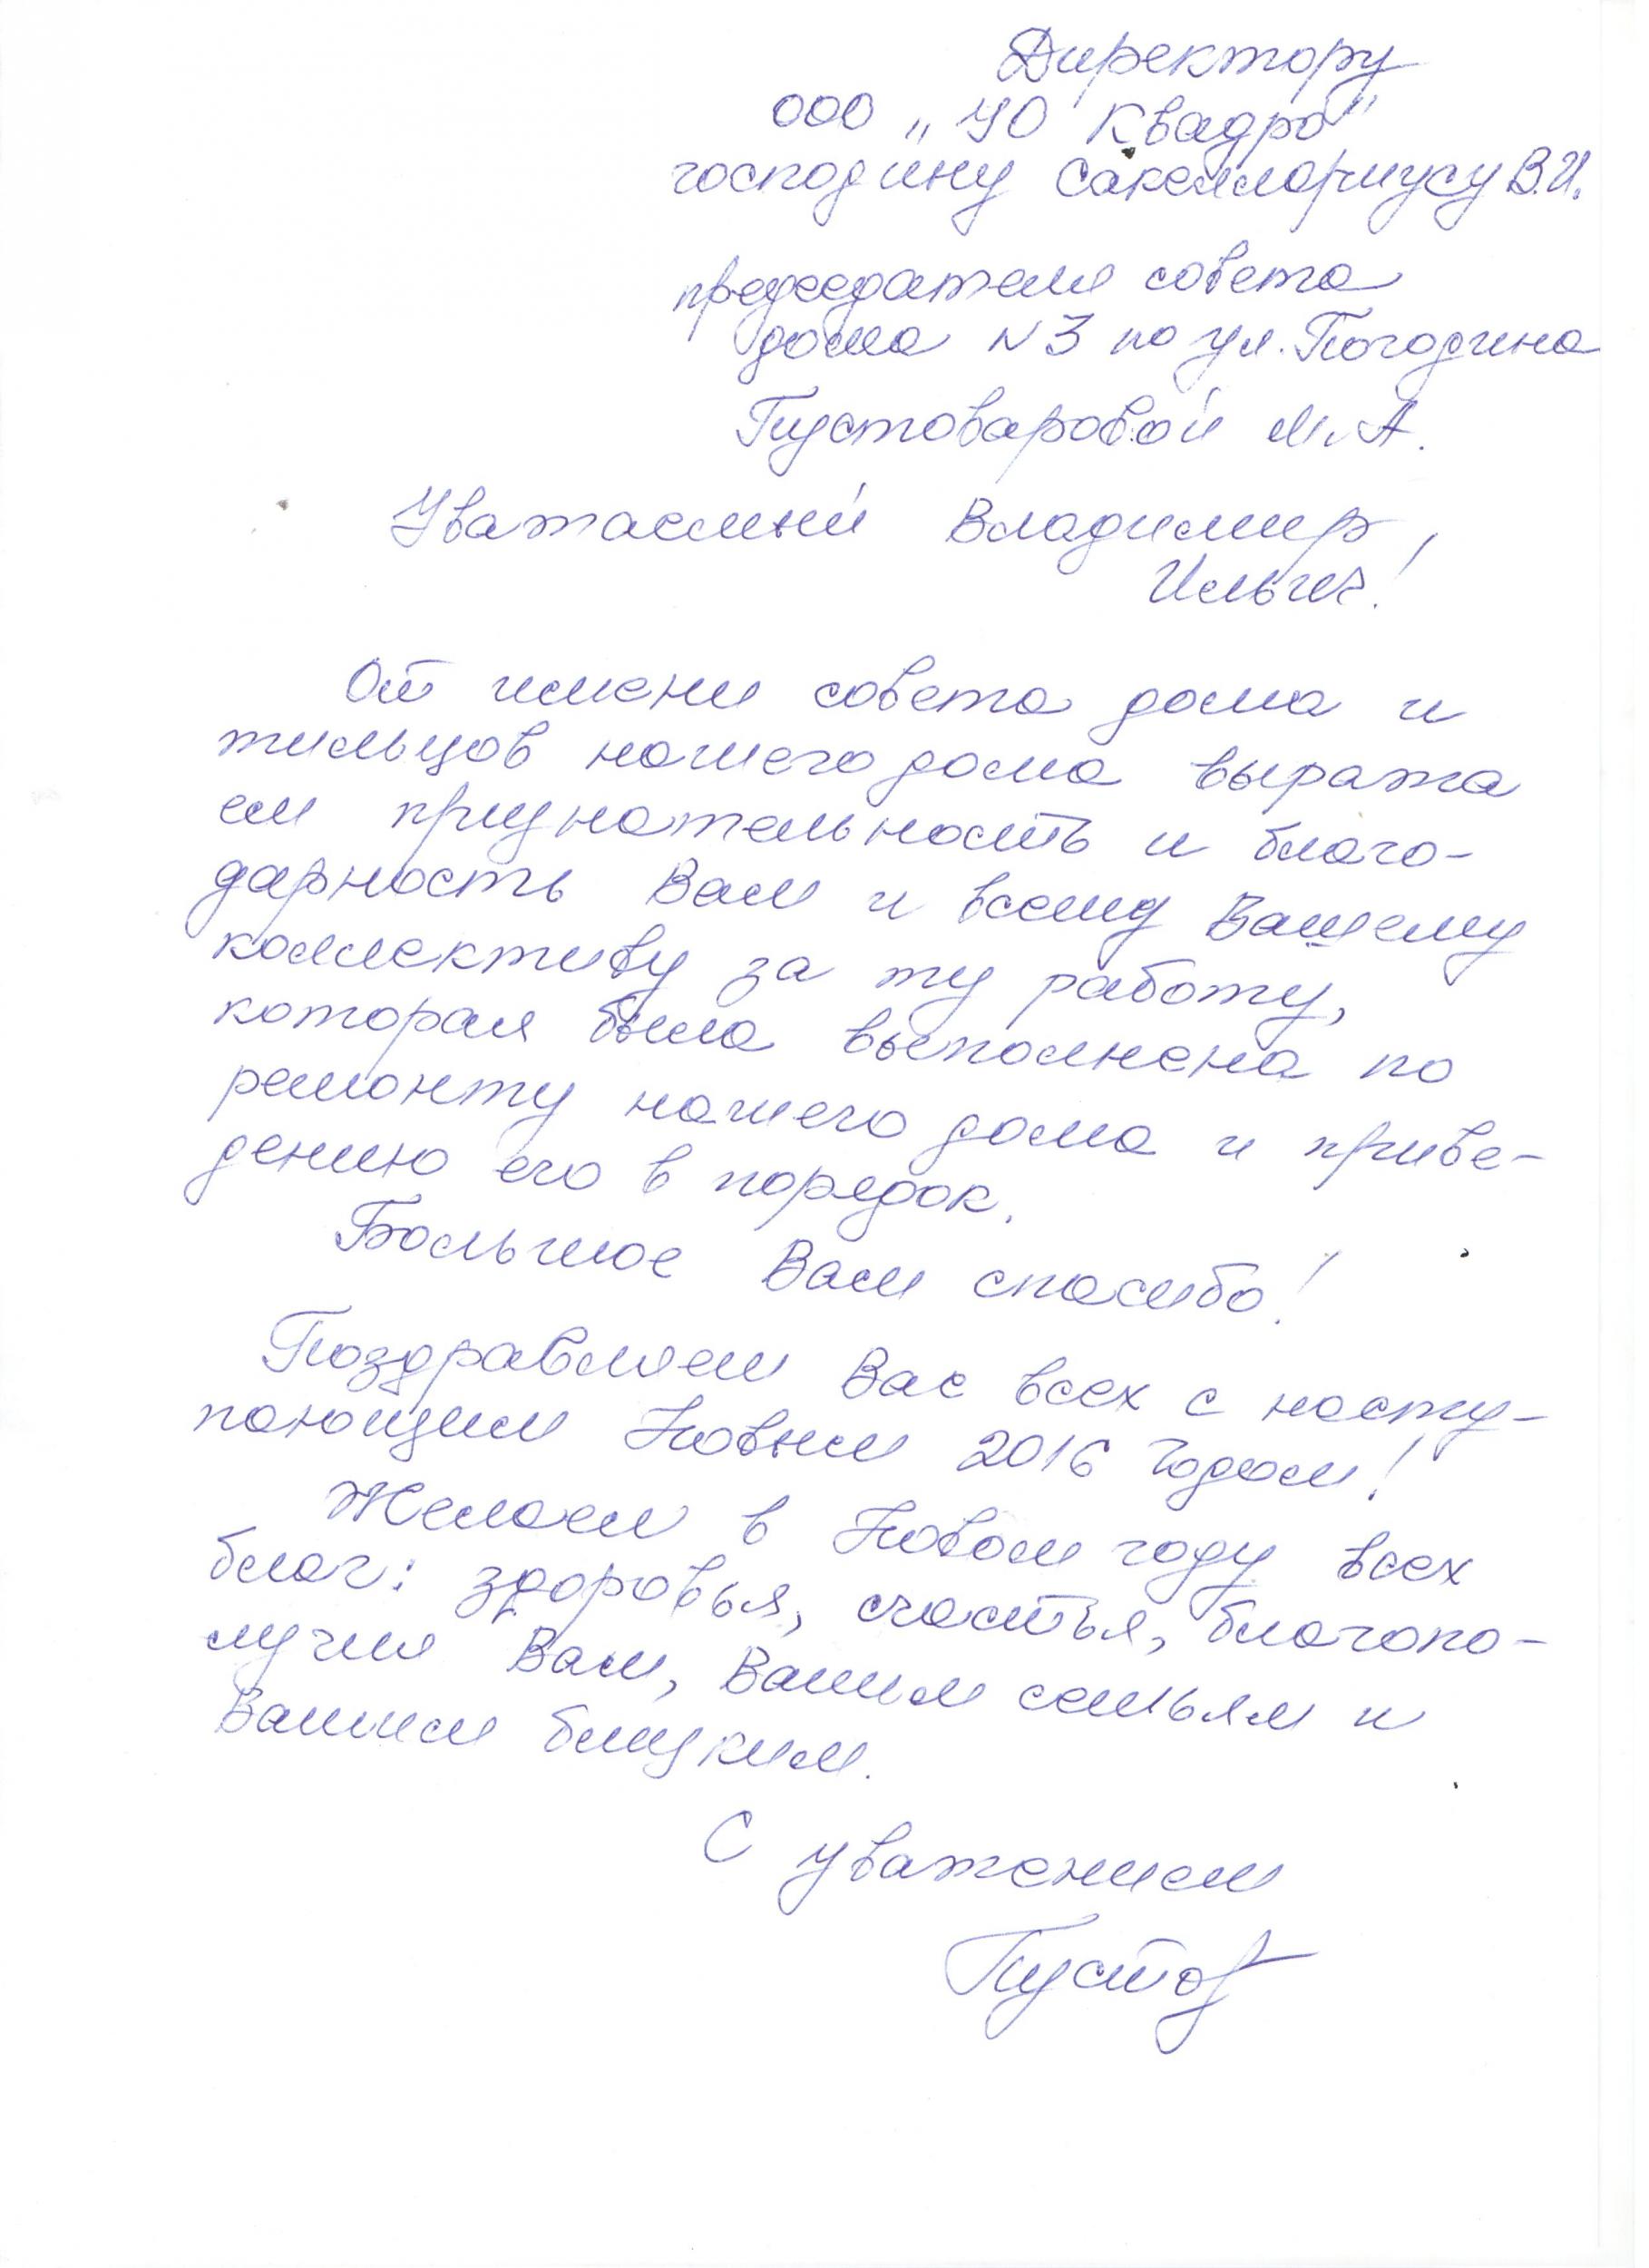 Директору
ООО „УО Квадро"
господину Сакеллариусу В.И.
председателя совета
дома N3 по ул. Погодина
Пустоваровой М.А.
Уважаемый Владимир,
Ильич!
От имени совета дома и
жильцов нашего дома выража
ем признательность и благо-
дарность Вам и всему Вашему
коллективу за ту работу,
которая была выполнена по
ремонту нашего дома и приве-
дению его в порядок.
Большое Вам спасибо!
Поздравляем Вас всех с насту-
пающим Новым 2016 годом!
Желаем в Новом году всех
благ: здоровья, счастья, благопо-
лучия Вам, Вашим семьям и
Вашим близким.
С уважением
Пустов